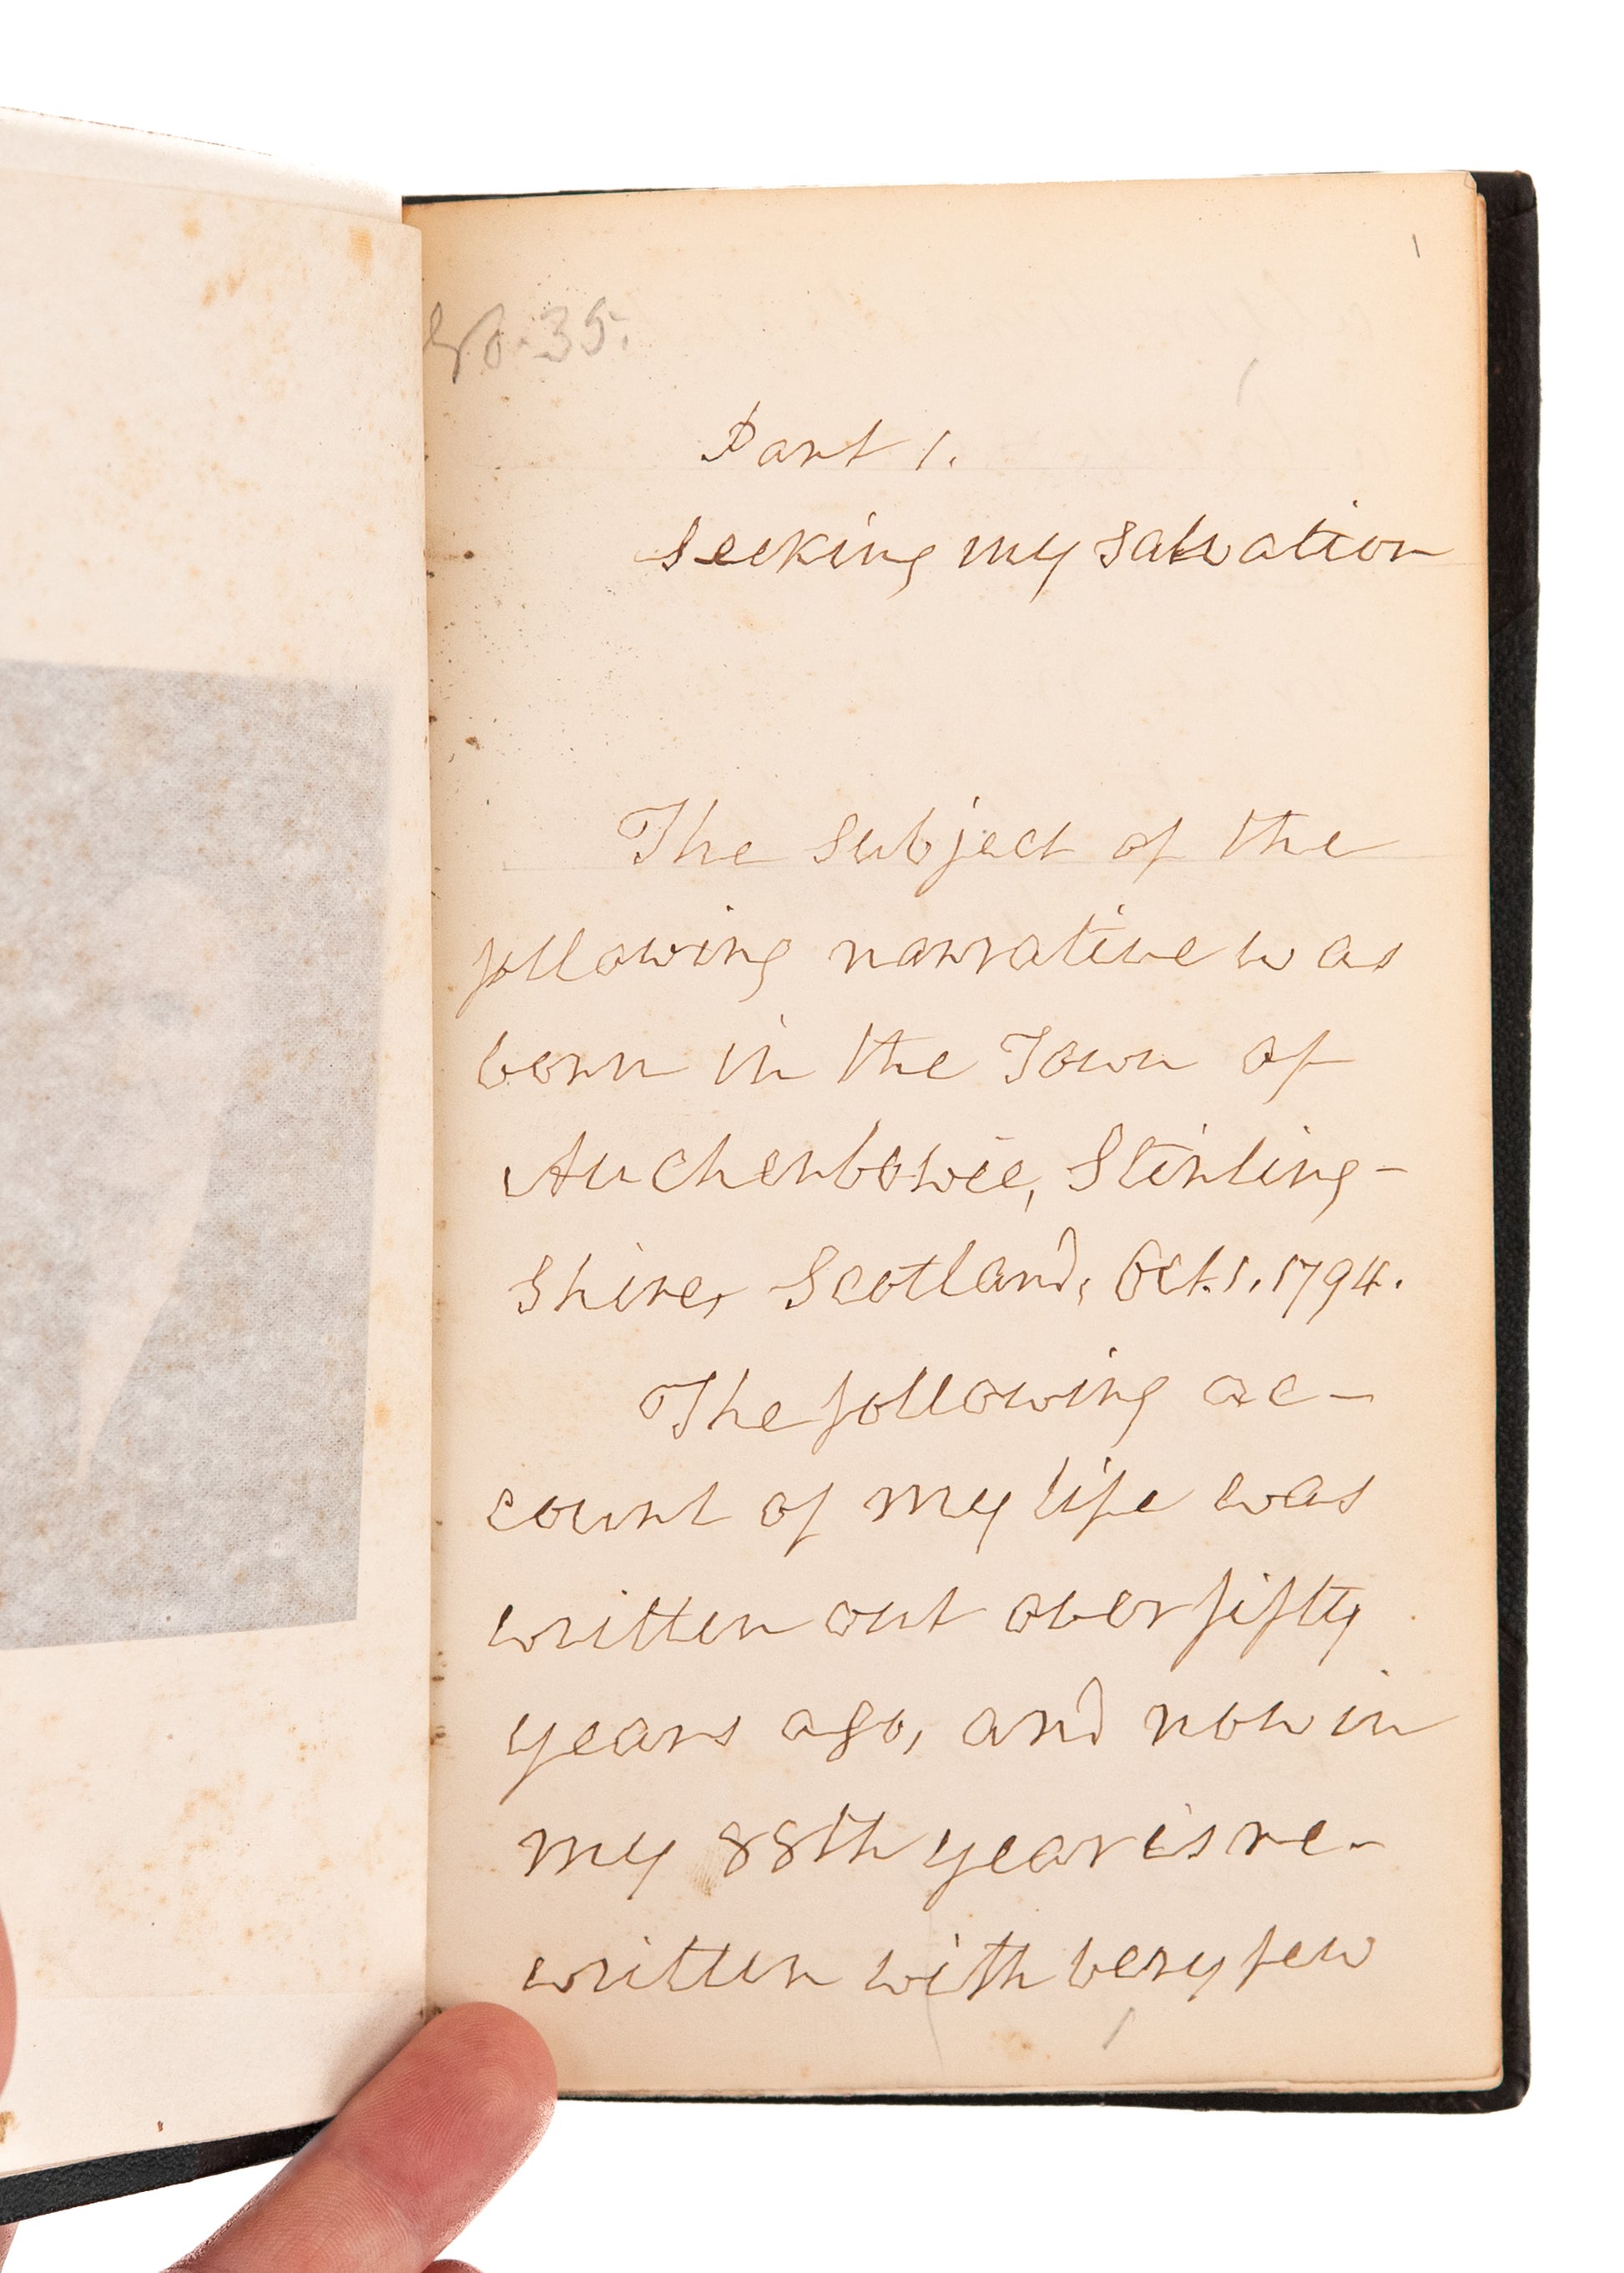 1
No. 35.
Part 1.
Seeking my Salvation
The subject of the
following narrative was
born in the Town of
Auchenbowie, Stirling-
Shire, Scotland, Oct. 1. 1794.
The following ac-
count of my life was
written out over fifty
years ago, and now in
my 88th year is re-
written with very few